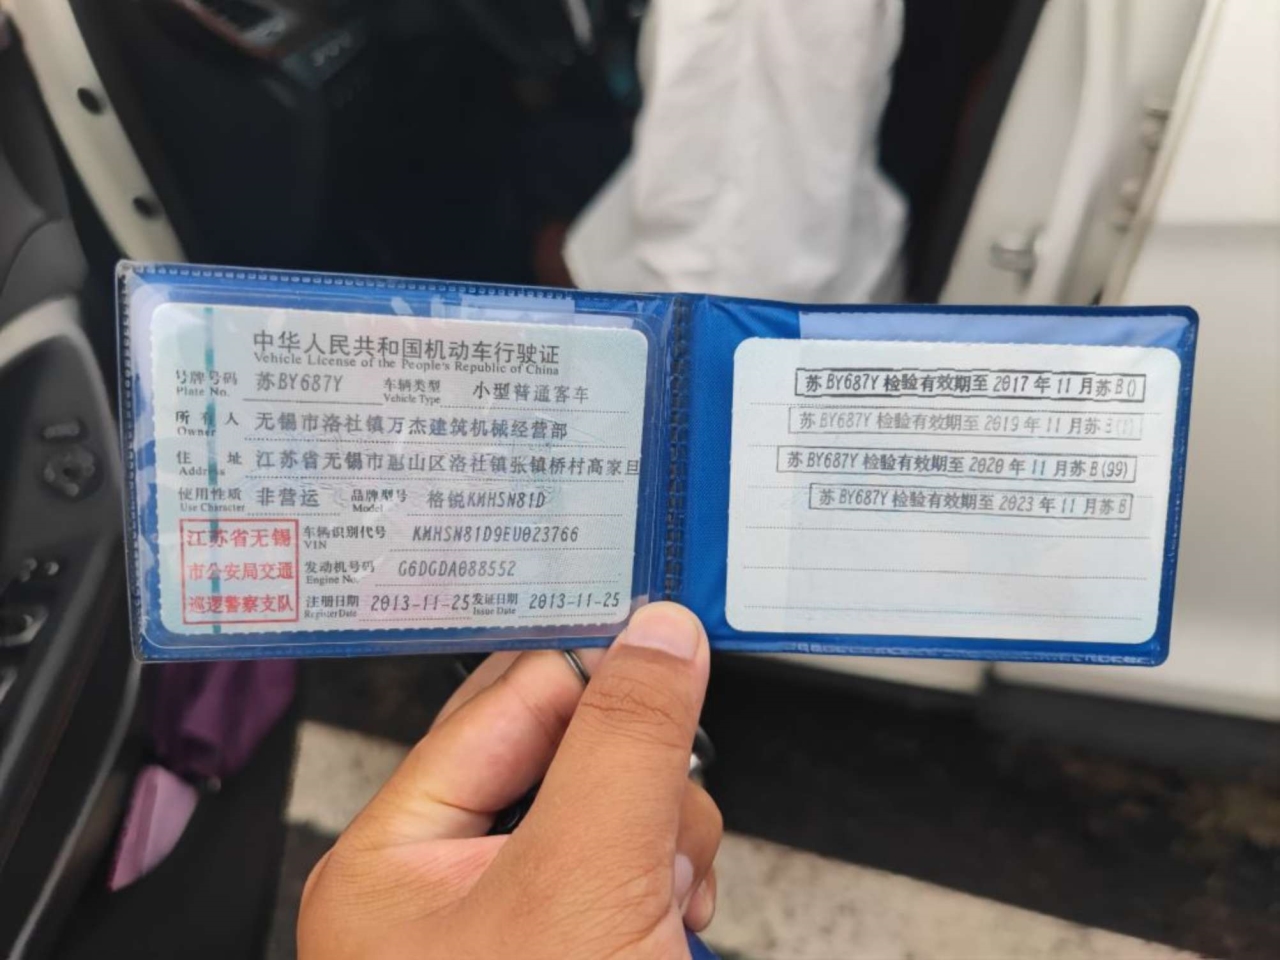 中华人民共和国机动车行驶证
Vehicle License of the People's Republic of China
号牌号码 苏BY687Y 车辆类型 小型普通客车
Plate No. Vehicle Type
所有人 无锡市洛社镇万杰建筑机械经营部
Owner
住址 江苏省无锡市惠山区洛社镇张镇桥村高家旦
Address
使用性质 非营运 品牌型号 格锐KMHSN81D
Use Character Model
江苏省无锡
市公安局交通
巡逻警察支队
车辆识别代号 KMHSN81D9EU023766
VIN
发动机号码 G6DGDA088552
Engine No.
注册日期 2013-11-25 发证日期 2013-11-25
Register Date Issue Date
苏BY687Y 检验有效期至 2017 年 11 月苏B()
苏BY687Y 检验有效期至 2019 年 11 月苏B
苏BY687Y 检验有效期至 2020 年 11 月苏B(99)
苏BY687Y 检验有效期至 2023 年 11 月苏B